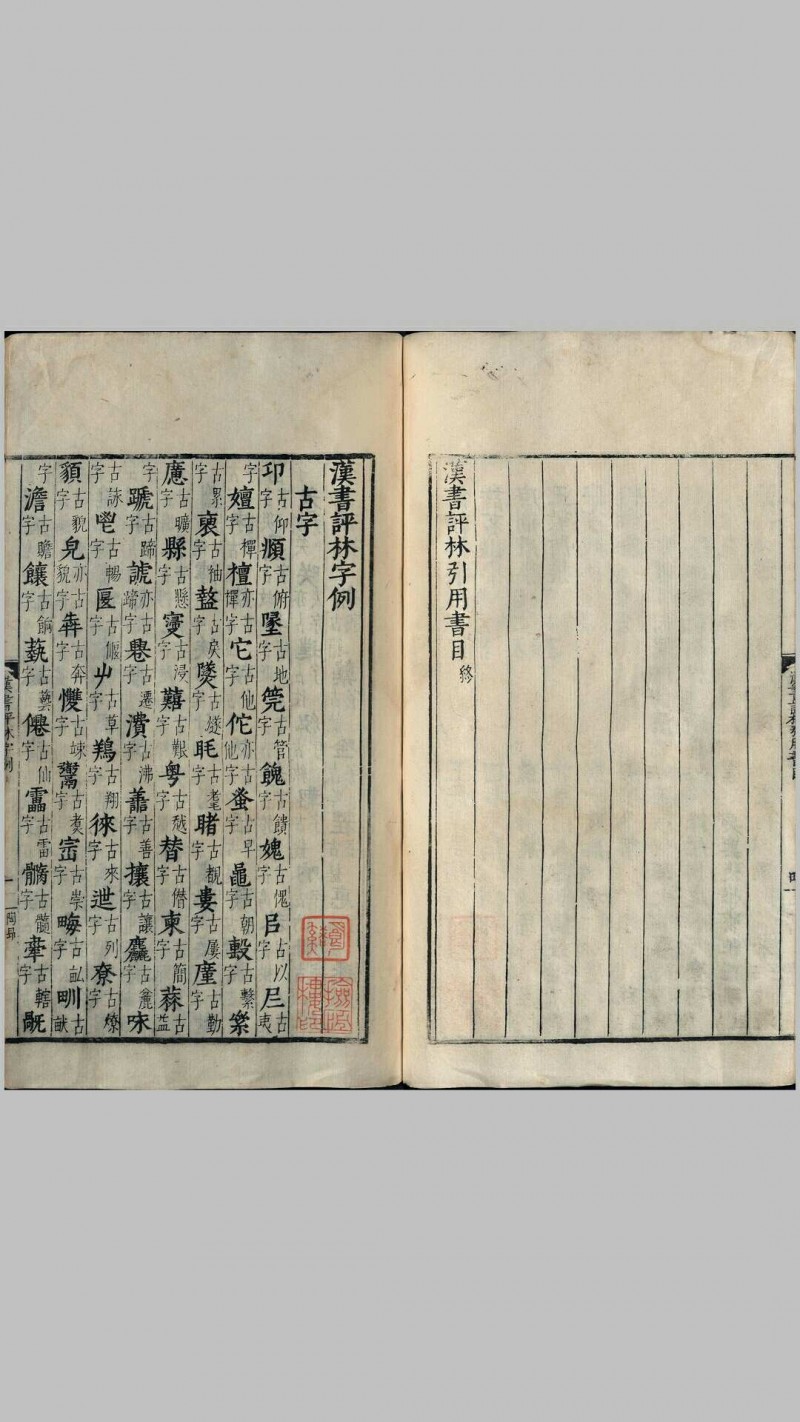 漢書評林引用書目 終
漢書評林字例
古字
卭古仰字 頫古俯字 墬古地字 筦古管字 餽古饋字 媿古愧字 㠯古以字 𡰥古夷
字 嬗古襌字 檀亦古襌字 它古他字 佗亦古他字 蚤古早字 鼂古朝字 毄古繫字 絫
古累字 褏古袖字 盭古戾字 㸂古燧字 眊古耄字 睹古覩字 婁古屢字 廑古勤字
應古曠字 縣古懸字 寖古浸字 囏古艱字 粤古越字 朁古僭字 柬古簡字 蒜古益
字 蹏古蹄字 謕亦古蹄字 䙴古遷字 潰古沸字 譱古善字 攘古讓字 麤古麄字 咏
古詠字 鬯古暢字 匽古偃字 屮古草字 鴹古翔字 徠古來字 迣古列字 尞古燎字
貌古貌字 皃亦古貌字 犇古奔字 㦼古竦字 鬻古煑字 崈古崇字 畮古畝字 甽古畎
字 澹古贍字 饟古餉字 蓺古藝字 僊古仙字 靁古雷字 髓古髓字 舝古轄字 旤
漢書評林字例
一